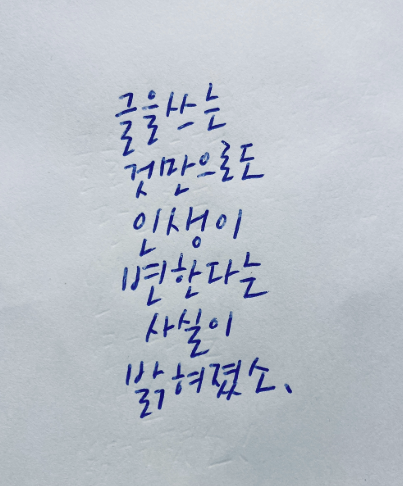 글을 쓰는
것만으로도
인생이
변한다는
사실이
밝혀졌소.